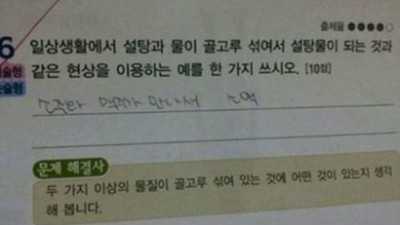 출제율
6 일상생활에서 설탕과 물이 골고루 섞여서 설탕물이 되는 것과
같은 현상을 이용하는 예를 한 가지 쓰시오. [10점]
술형
소주와 맥주가 만나서 소맥
문제 해결사
두 가지 이상의 물질이 골고루 섞여 있는 것에 어떤 것이 있는지 생각
해 봅니다.